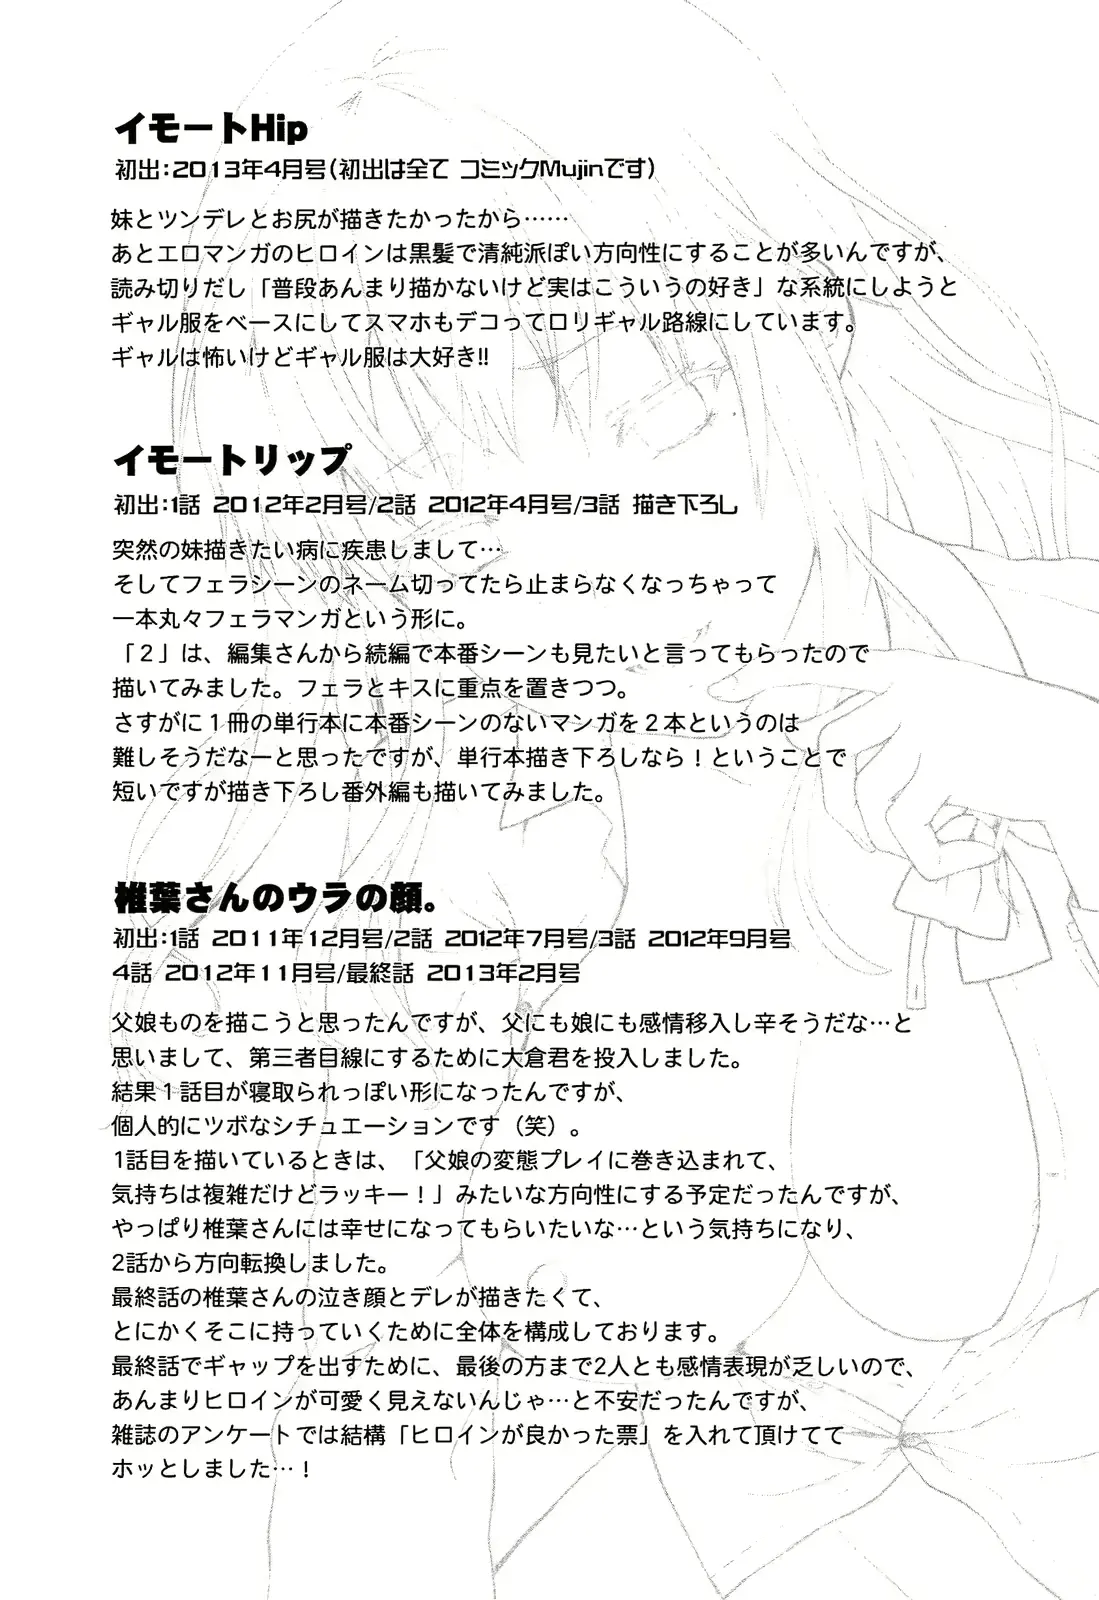 イモートHip
初出：2013年4月号（初出は全て コミックMujinです）
妹とツンデレとお尻が描きたかったから……
あとエロマンガのヒロインは黒髪で清純派ぽい方向性にすることが多いんですが、
読み切りだし「普段あんまり描かないけど実はこういうの好き」な系統にしようと
ギャル服をベースにしてスマホもデコってロリギャル路線にしています。
ギャルは怖いけどギャル服は大好き!!
イモートリップ
初出：1話 2012年2月号/2話 2012年4月号/3話 描き下ろし
突然の妹描きたい病に疾患しまして…
そしてフェラシーンのネーム切ってたら止まらなくなっちゃって
一本丸々フェラマンガという形に。
「２」は、編集さんから続編で本番シーンも見たいと言ってもらったので
描いてみました。フェラとキスに重点を置きつつ。
さすがに１冊の単行本に本番シーンのないマンガを２本というのは
難しそうだなーと思ったですが、単行本描き下ろしなら！ということで
短いですが描き下ろし番外編も描いてみました。
椎葉さんのウラの顔。
初出：1話 2011年12月号/2話 2012年7月号/3話 2012年9月号
4話 2012年11月号/最終話 2013年2月号
父娘ものを描こうと思ったんですが、父にも娘にも感情移入し辛そうだな…と
思いまして、第三者目線にするために大倉君を投入しました。
結果１話目が寝取られっぽい形になったんですが、
個人的にツボなシチュエーションです（笑）。
1話目を描いているときは、「父娘の変態プレイに巻き込まれて、
気持ちは複雑だけどラッキー！」みたいな方向性にする予定だったんですが、
やっぱり椎葉さんには幸せになってもらいたいな…という気持ちになり、
2話から方向転換しました。
最終話の椎葉さんの泣き顔とデレが描きたくて、
とにかくそこに持っていくために全体を構成しております。
最終話でギャップを出すために、最後の方まで2人とも感情表現が乏しいので、
あんまりヒロインが可愛く見えないんじゃ…と不安だったんですが、
雑誌のアンケートでは結構「ヒロインが良かった票」を入れて頂けてて
ホッとしました…！